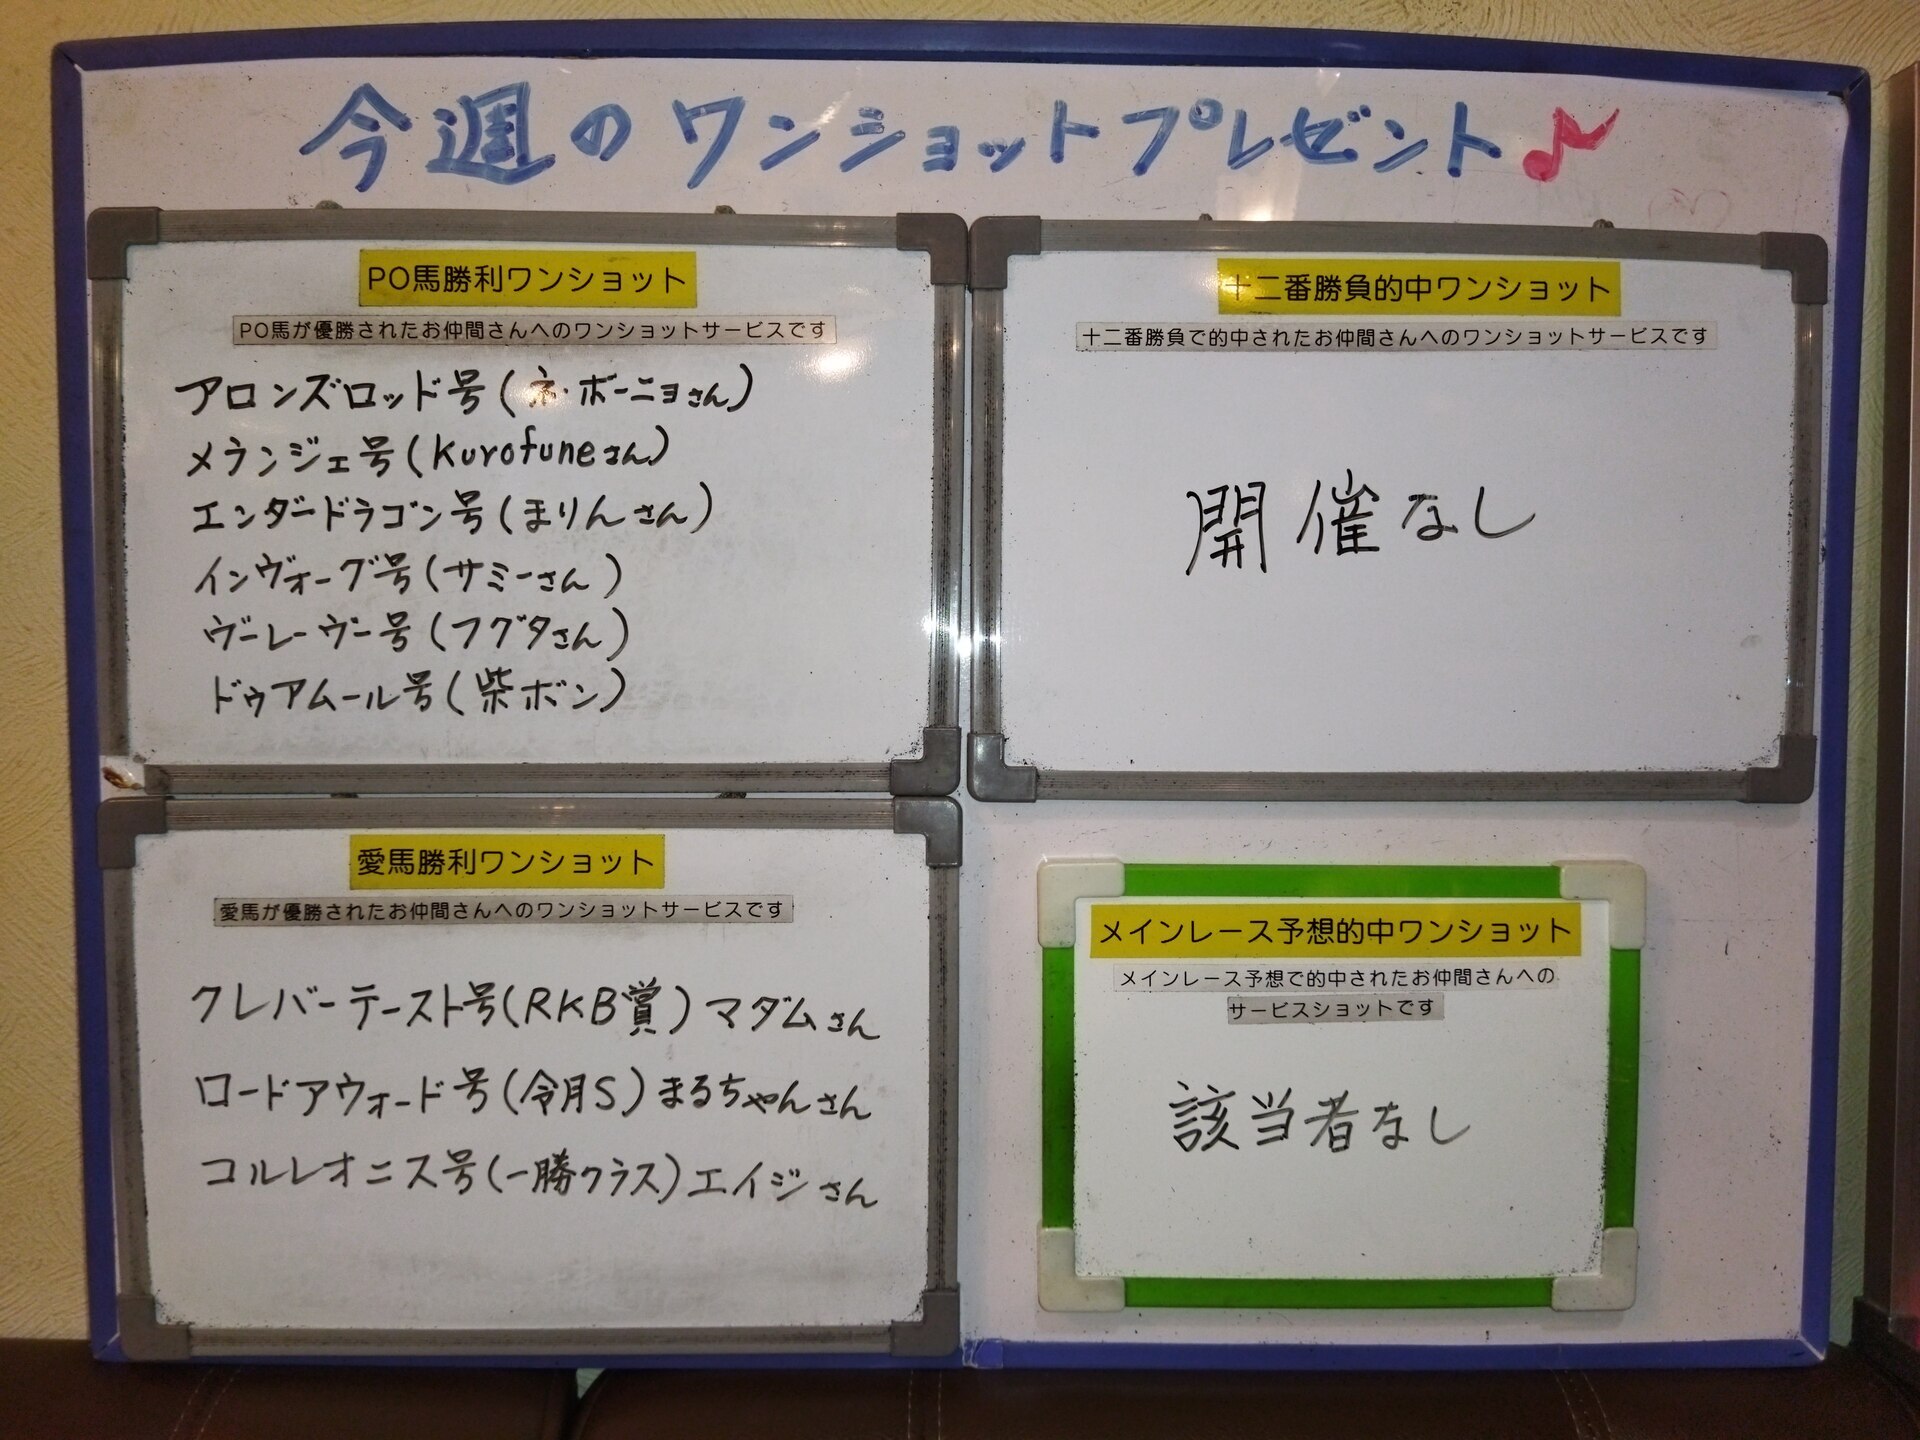 今週のワンショットプレゼント♪
PO馬勝利ワンショット
PO馬が優勝されたお仲間さんへのワンショットサービスです
アロンズロッド号(ネ・ボーニョさん)
メランジェ号(Kurofuneさん)
エンダードラゴン号(まりんさん)
インヴォーグ号(サミーさん)
ヴーレーヴー号(フグタさん)
ドゥアムール号(柴ボン)
十二番勝負的中ワンショット
十二番勝負で的中されたお仲間さんへのワンショットサービスです
開催なし
愛馬勝利ワンショット
愛馬が優勝されたお仲間さんへのワンショットサービスです
クレバーテースト号(RKB賞)マダムさん
ロードアウォード号(令月S)まるちゃんさん
コルレオニス号(一勝クラス)エイジさん
メインレース予想的中ワンショット
メインレース予想で的中されたお仲間さんへの
サービスショットです
該当者なし